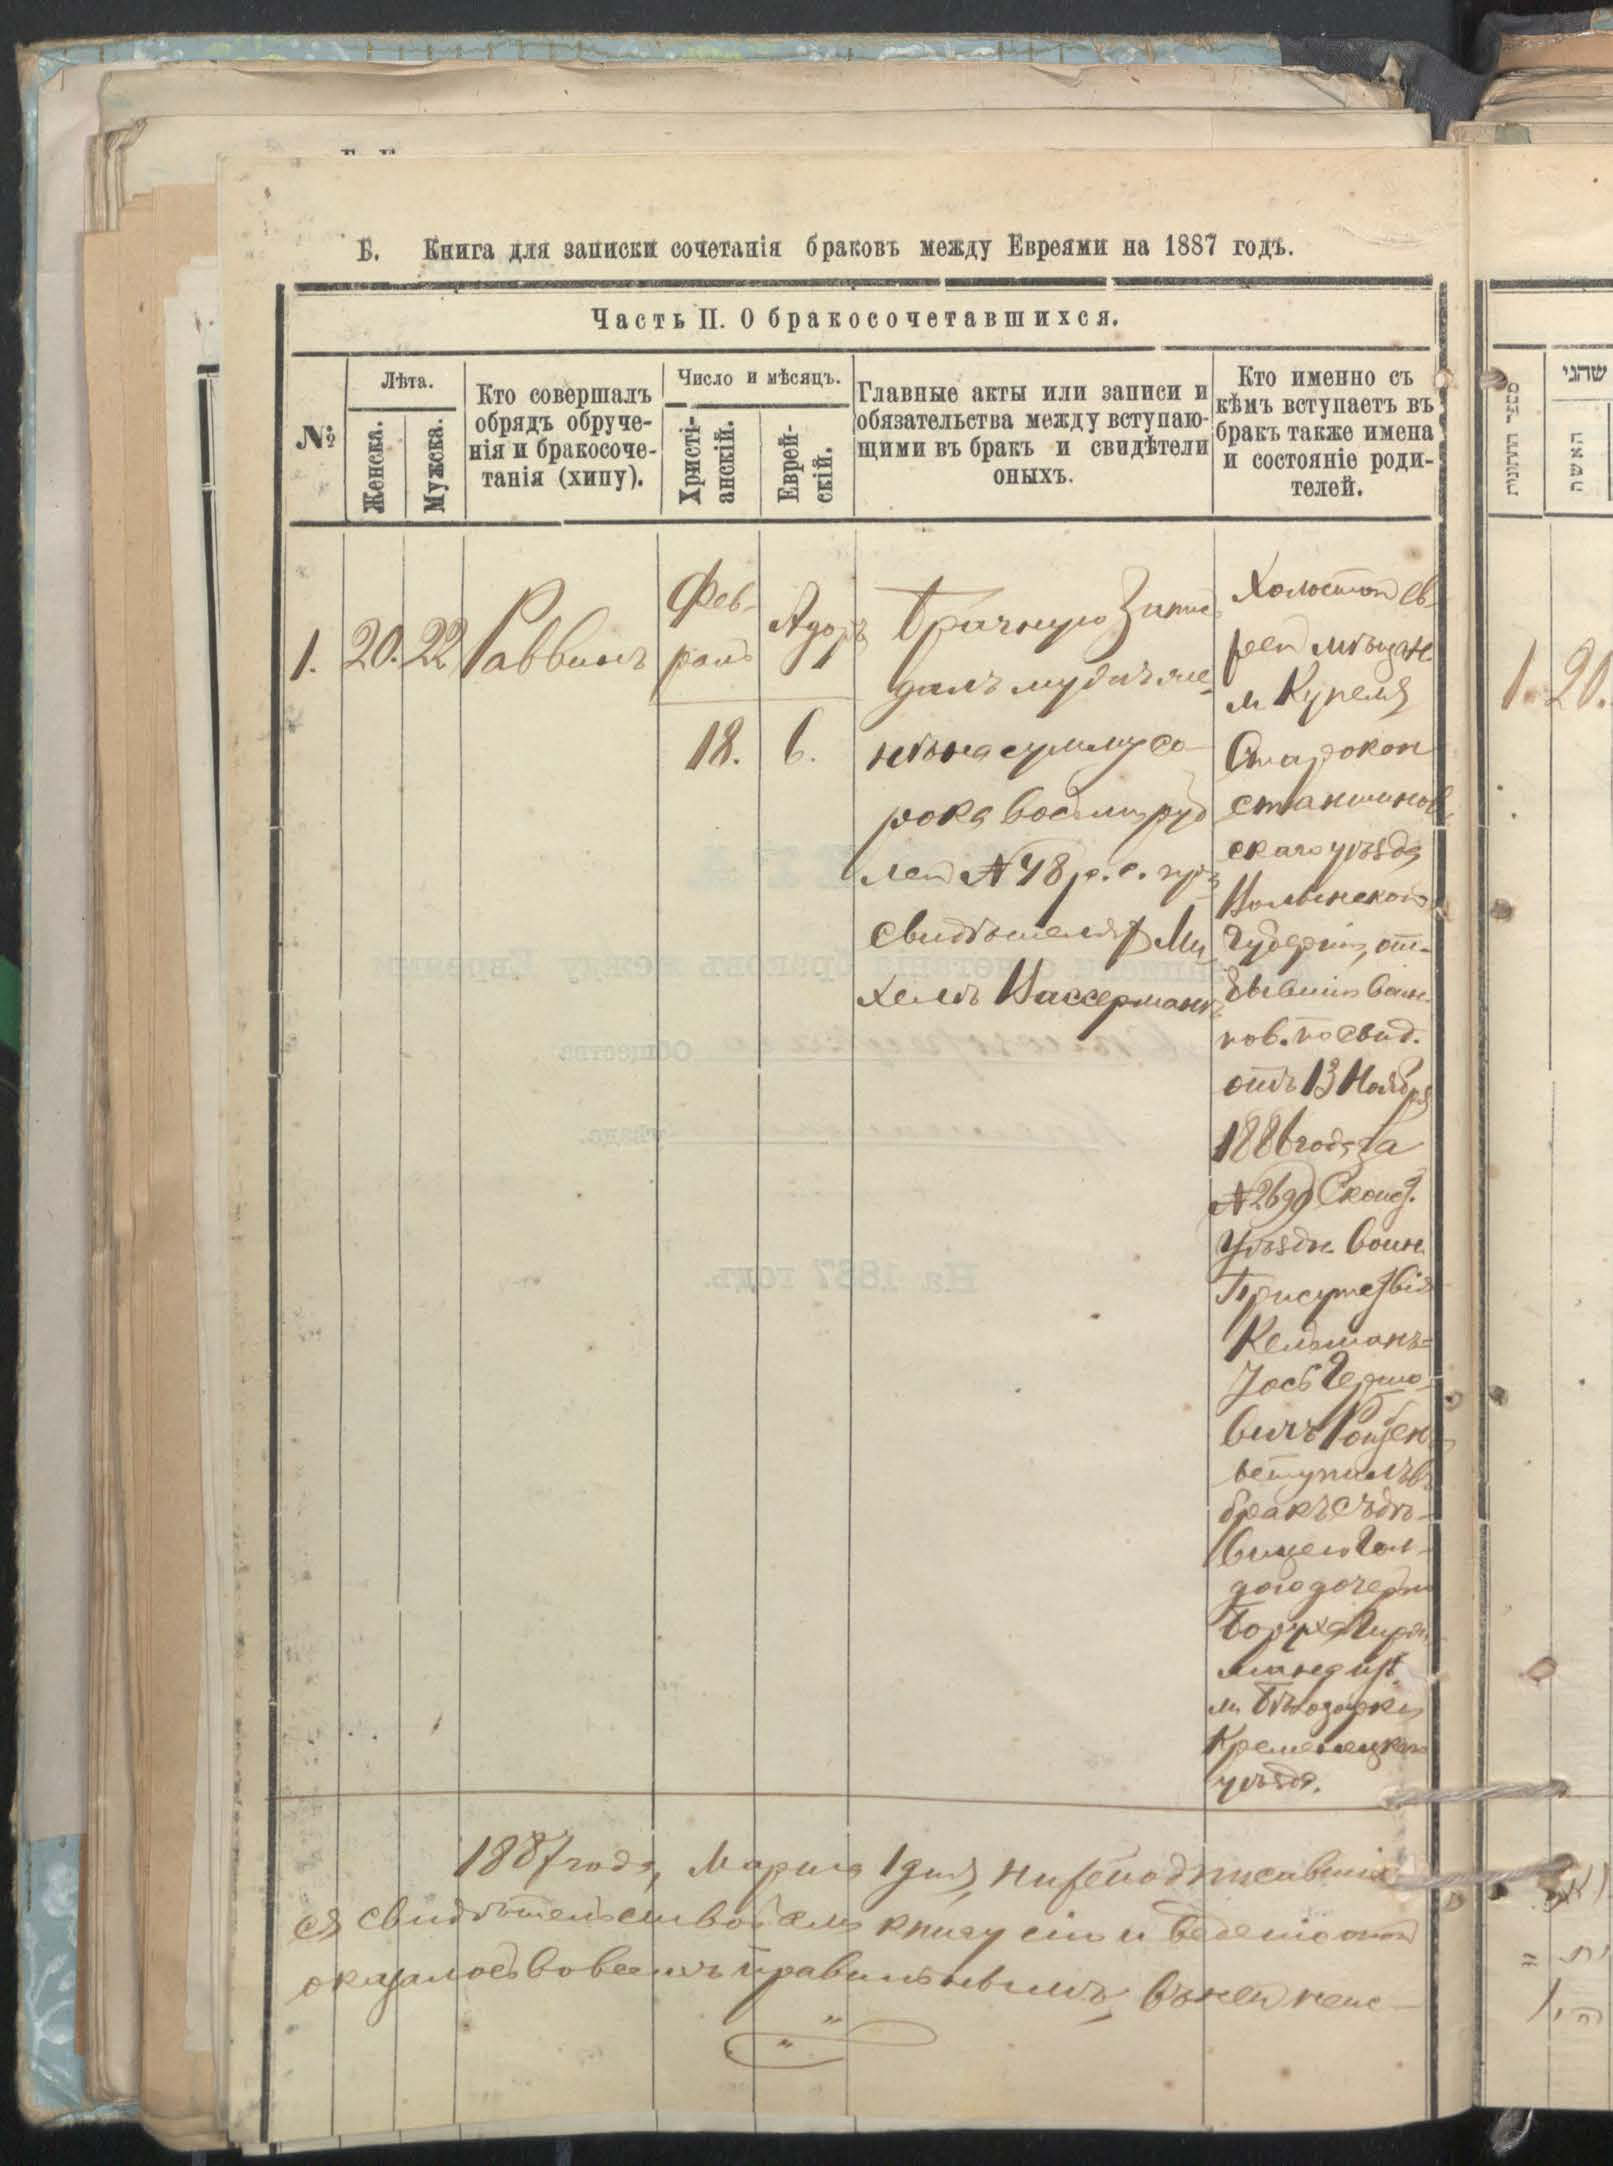 Б. Книга для записки сочетанія браковъ между Евреями на 1887 годъ.
Часть II. О бракосочетавшихся.
№
Лѣта.
Женска.
Мужска.
Кто совершалъ
обрядъ обруче-
нія и бракосоче-
танія (хипу).
Число и мѣсяцъ.
Христі-
анскій.
Еврей-
скій.
Главные акты или записи и
обязательства между вступаю-
щими въ бракъ и свидѣтели
оныхъ.
Кто именно съ
кѣмъ вступаетъ въ
бракъ также имена
и состояніе роди-
телей.
1.
20.
22
Раввинъ
Фев-
раль
18.
Адаръ
6.
Брачную Запись
далъ мужъ же-
нѣ на сумму со-
рока восьми руб
лей № 48 р. с. при
свидѣтеляхъ Ми
хель Вассерманъ
Холостой ев-
рей мѣщан.
м Купеля
Старокон
стантинов
скаго уѣзда
Волынской
Губерніи, от-
бывшій воин.
пов. по свид.
отъ 13 Ноября
1886 года за
№ Сконст.
Уѣздн. Воин.
Присутствія
Кельманъ-
Іось
вичъ
вступилъ въ
бракъ съ дѣ-
вицею Гол-
дою дочерью
Боруха
изъ
м Бѣлозорки
Кременецкаго
уѣзда.
1887 года, Марта 1 дня, нижеподписавшіе
ся свидѣтельствовали книгу сію и веденіе оной
оказалось во всемъ правильнымъ, въ ней неис-
האשה
1.
20.
На 1887 годъ.